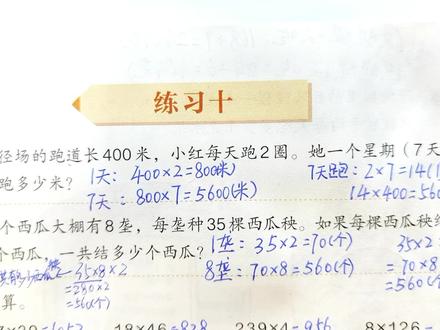 练习十
径场的跑道长400米，小红每天跑2圈。她一个星期（7天
跑多少米？ 1天：400×2=800(米) 7天跑：2×7=14(
7天：800×7=5600(米) 14×400=560
个西瓜大棚有8垄，每垄种35棵西瓜秧。如果每棵西瓜秧结
个西瓜，一共结多少个西瓜？ 1垄：35×2=70(个) 35×2
35×8×2 8垄：70×8=560(个) =70×8
=280×2 =560(个
=560(个)
算。
18×46=828 239×4=956 8×126